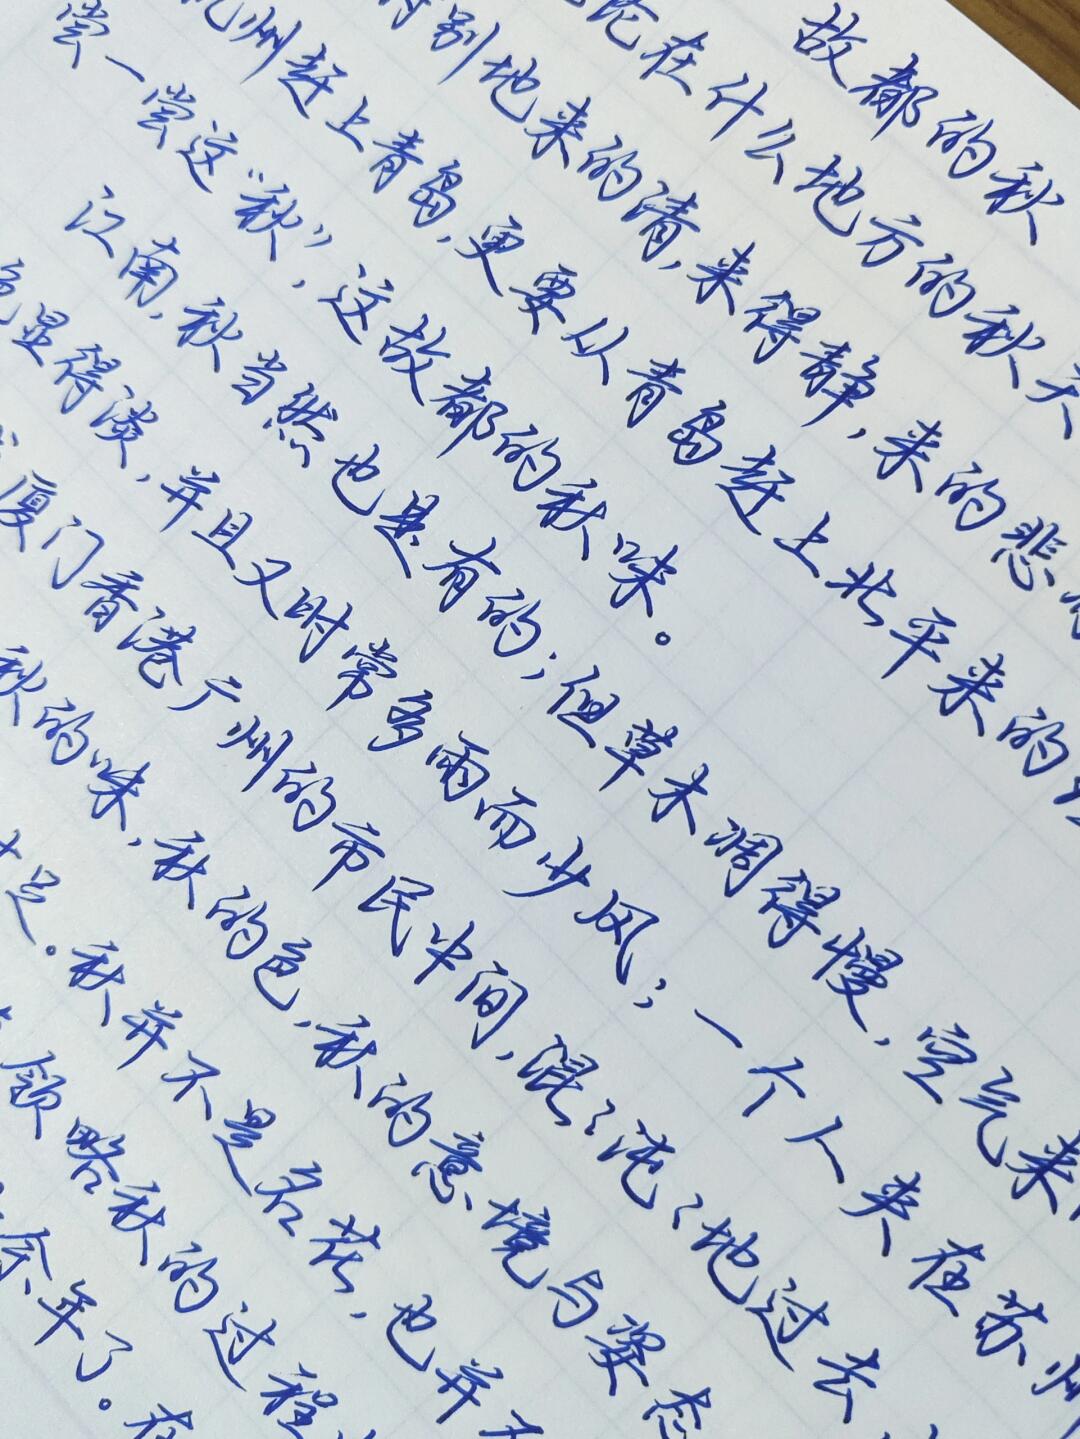 故都的秋
论在什么地方的秋天
特别地来的清,来得静,来的悲
杭州赶上青岛,更要从青岛赶上北平来的
尝一尝这“秋”,这故都的秋味。
江南,秋当然也是有的;但草木凋得慢,空气来
色显得淡,并且又时常多雨而少风;一个人夹在苏州
厦门香港广州的市民中间,混々沌々地过去
秋的味,秋的色,秋的意境与姿态
十足。秋并不是名花,也并不
领略秋的过程
余年了。在